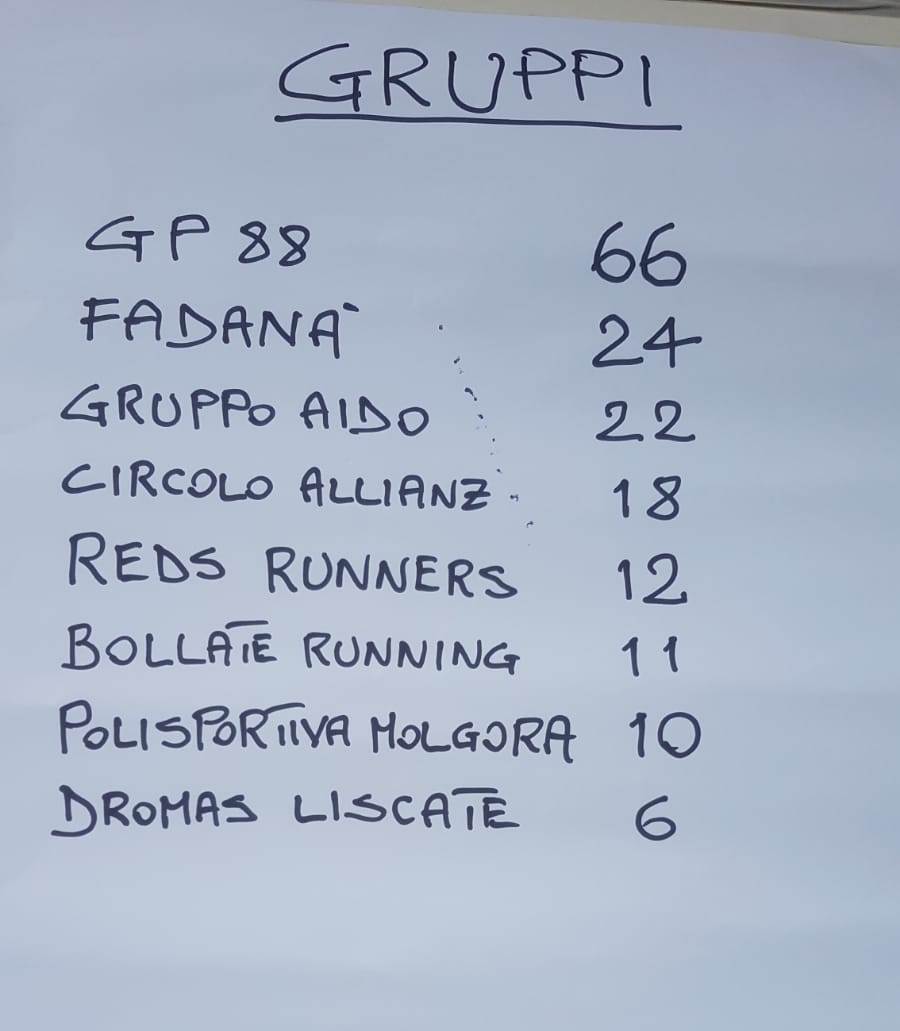 GRUPPI
GP 88 66
FADANÀ 24
GRUPPO AIDO 22
CIRCOLO ALLIANZ 18
REDS RUNNERS 12
BOLLATE RUNNING 11
POLISPORTIVA MOLGORA 10
DROMAS LISCATE 6